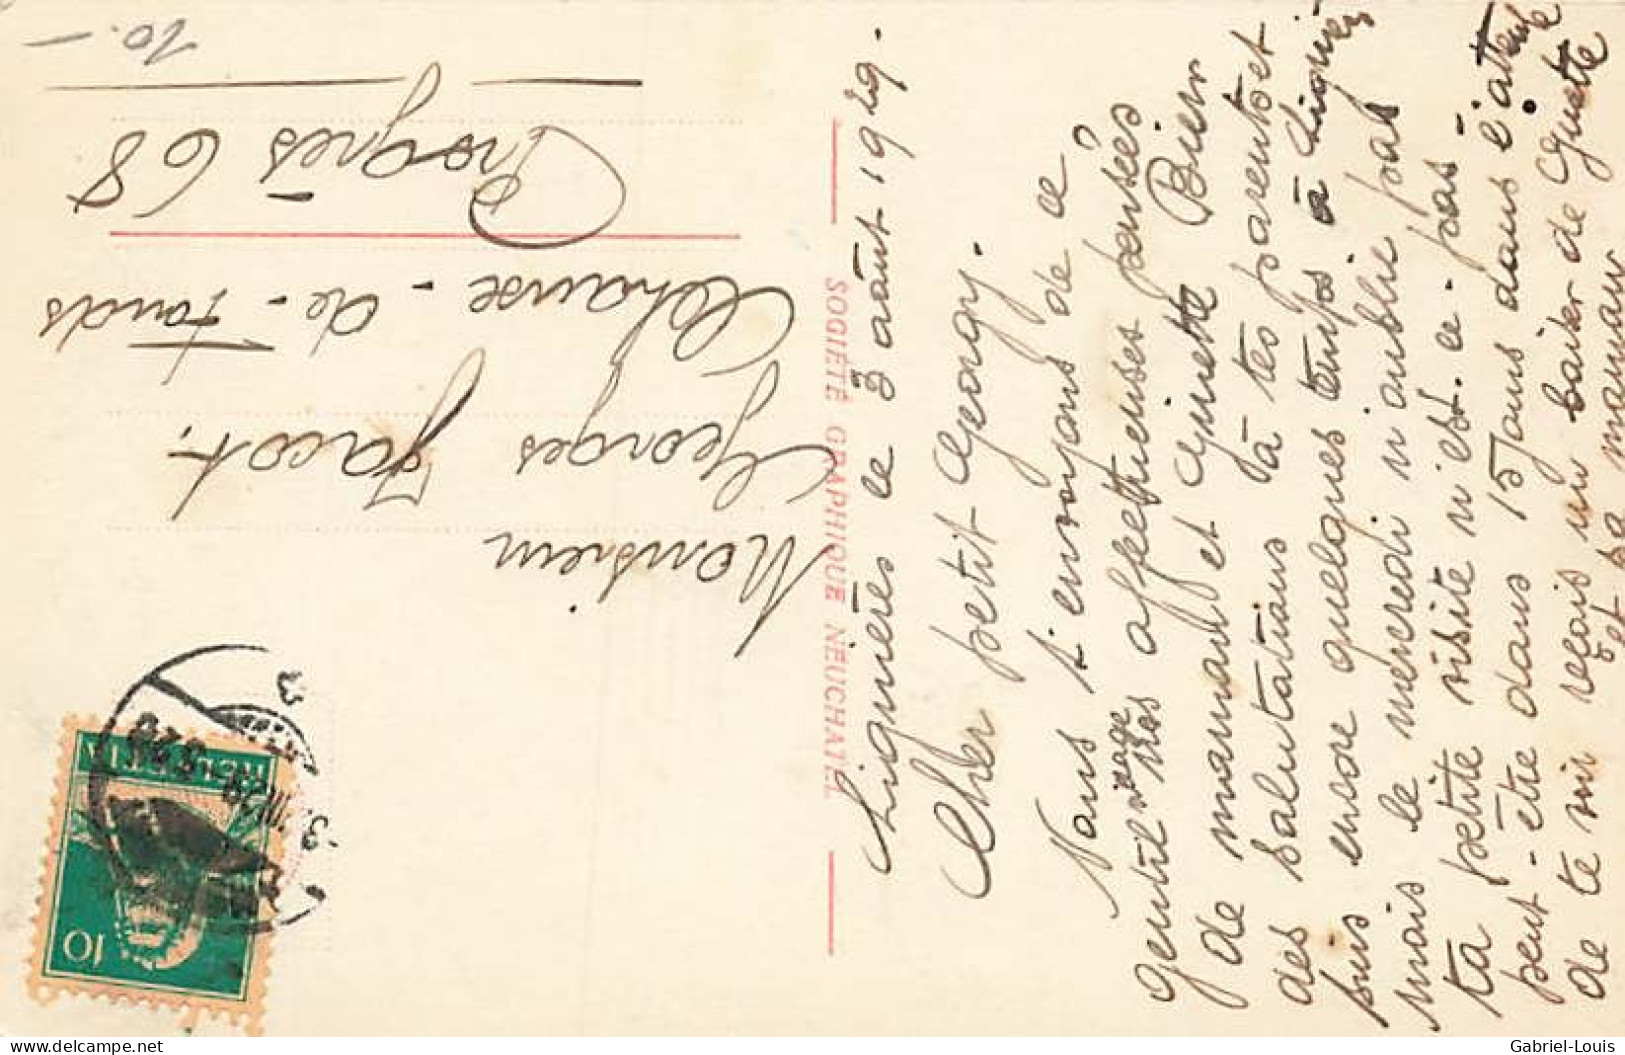 Lignières le 3 août 1929.
Cher petit Georgy.
Nous t'envoyons de ce
gentil village nos affectueuses pensées
de maman et Guiette Bien
des salutations à tes parents et
suis encore quelques temps à Lignières
mais le mercredi n'oublie pas
ta petite visite n'est-ce-pas
peut-être dans 15 jours dans l'attente
de te lir reçois un baiser de Guiette
et sa maman
SOCIÉTÉ GRAPHIQUE NEUCHATEL
Monsieur
Georges Jacot.
Chause-de-Fonds
Progrès 68
10.-
HELVETIA
10
delcampe.net
Gabriel-Louis